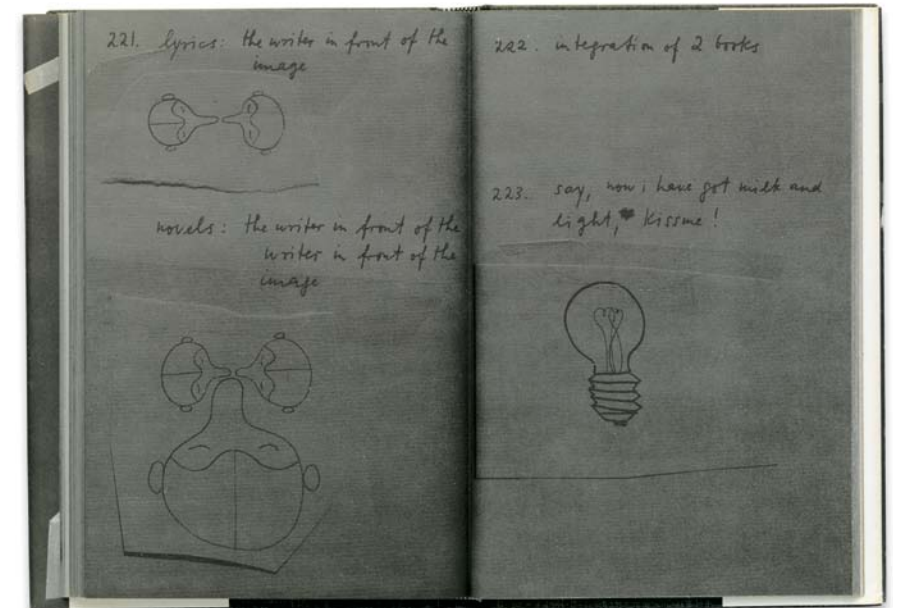 221. lyrics: the writer in front of the
image
novels: the writer in front of the
writer in front of the
image
222. integration of 2 books
223. say, now i have got milk and
light, kissme!